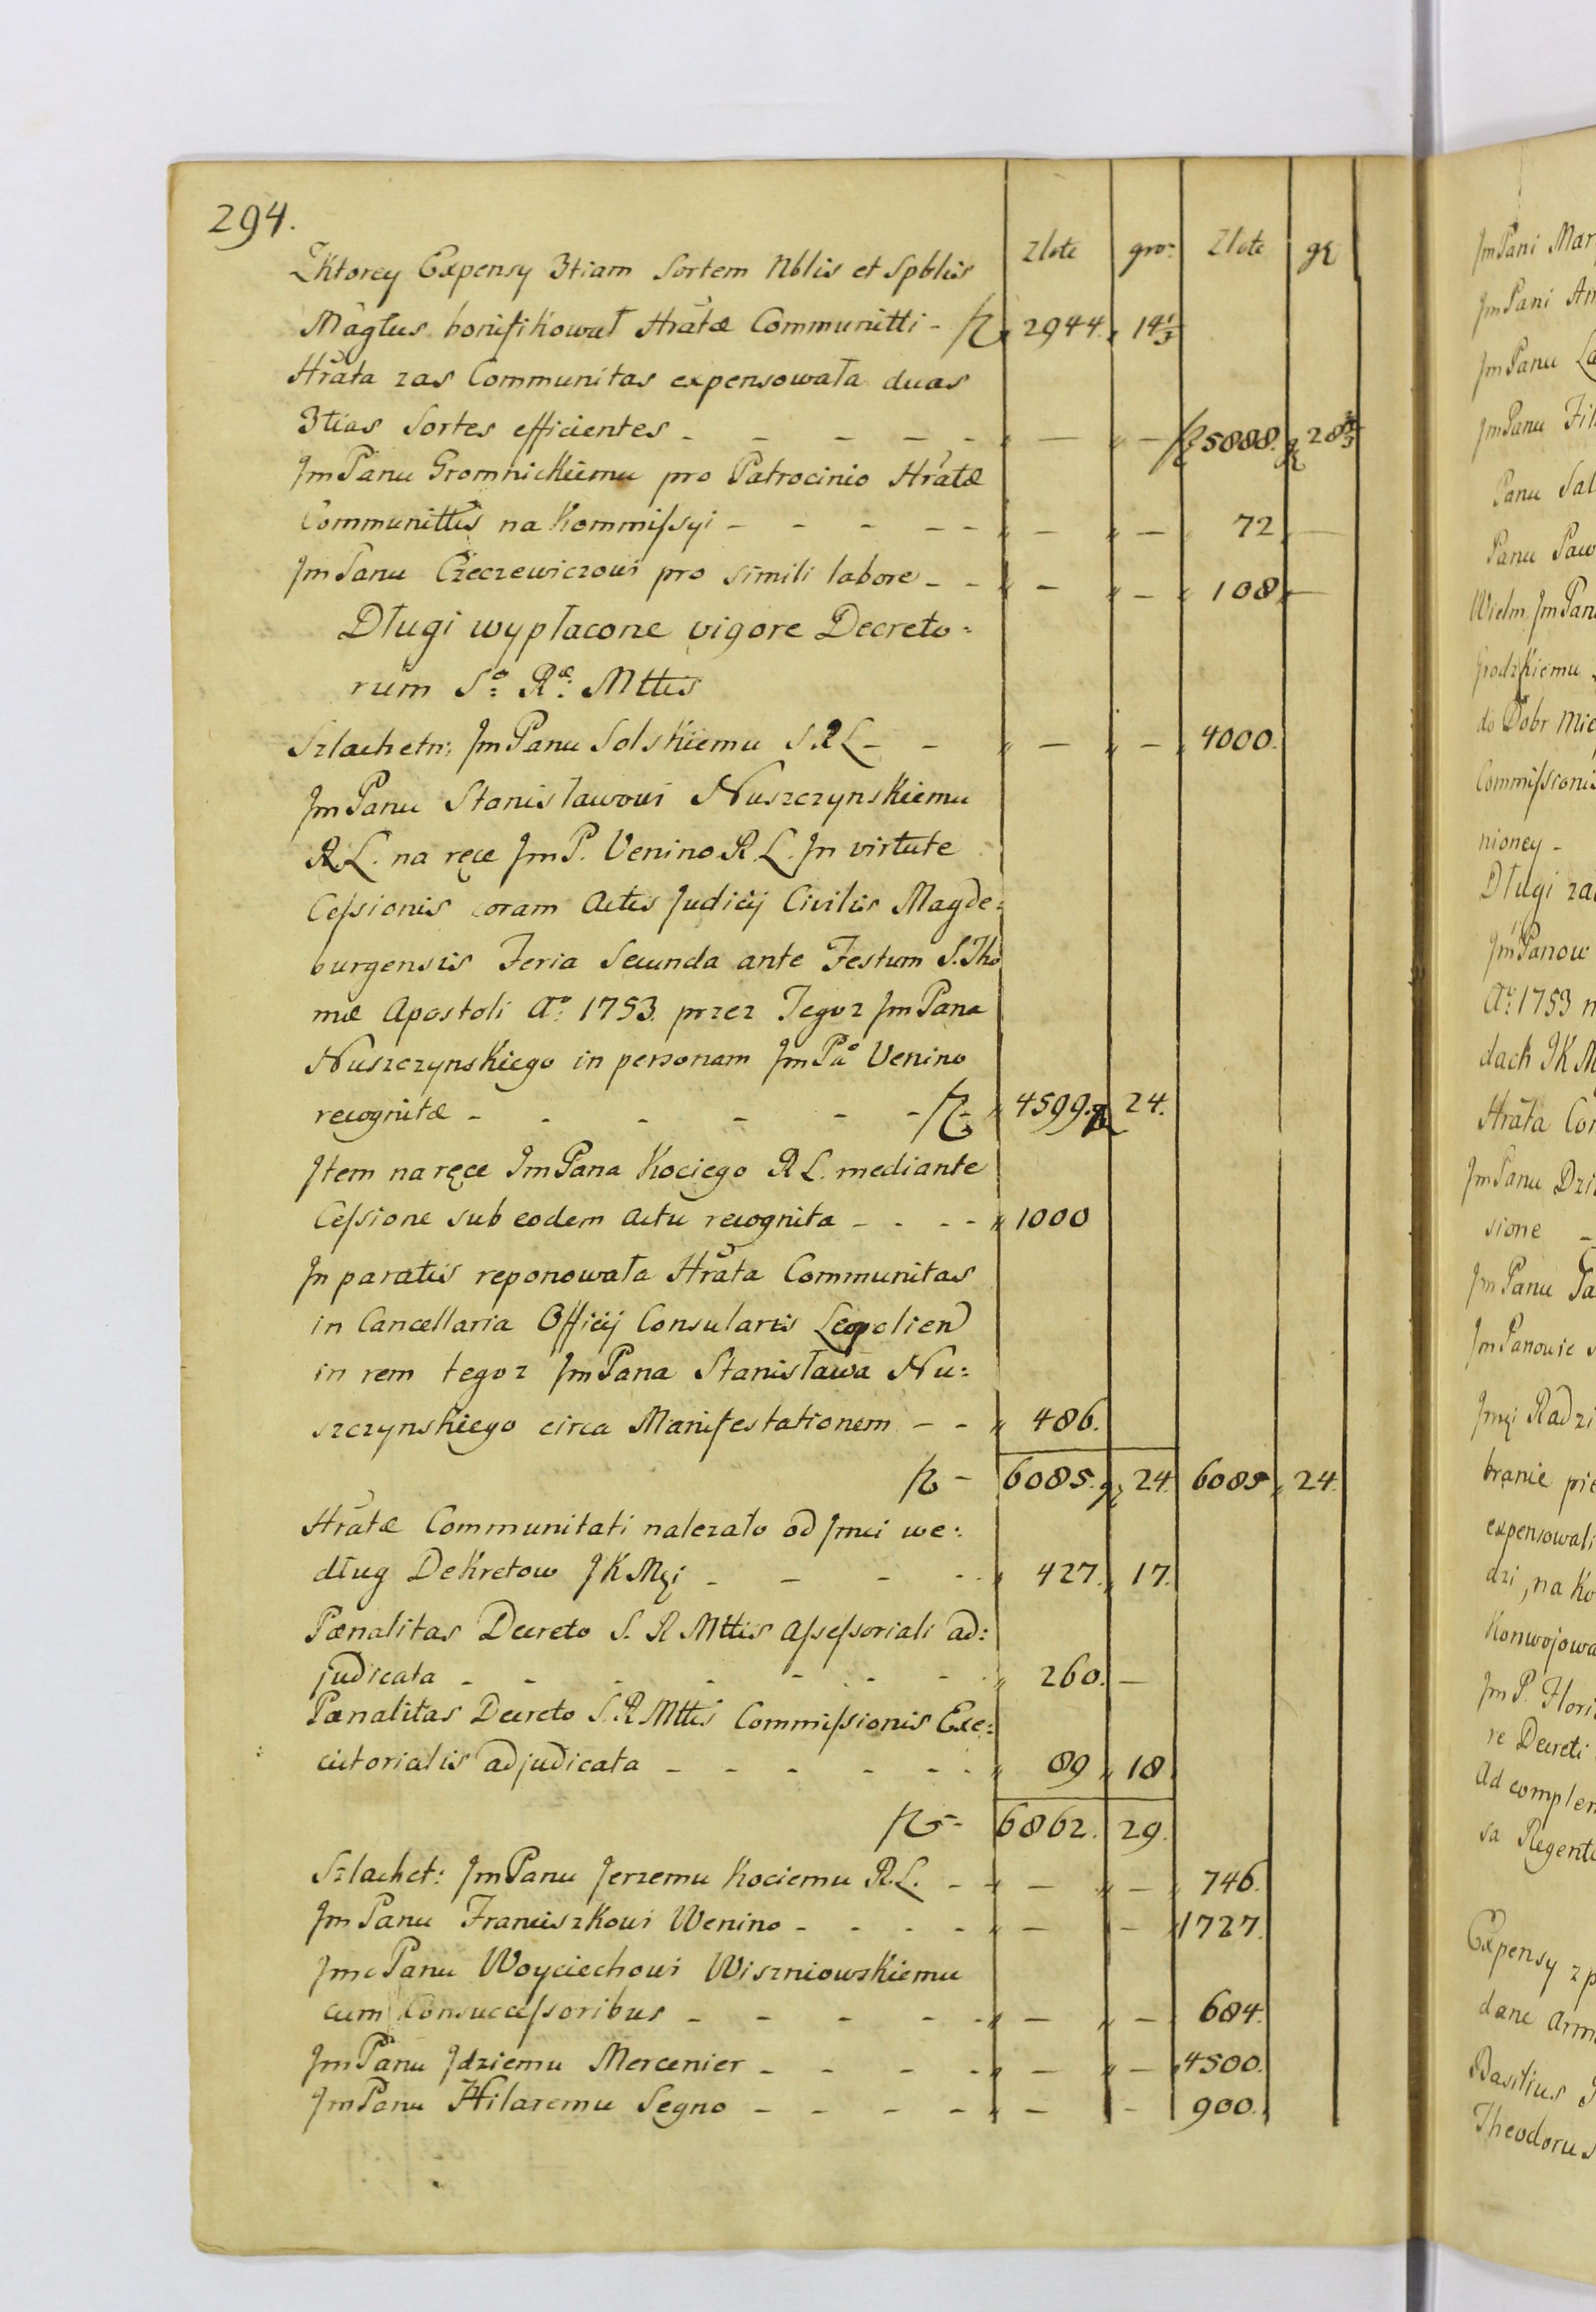 294.
Złote gro: Złote gr
Z Ktorey Expensy 3tiam Sortem Nblis et Spblis
Magtus bonifikował Hrãtæ Communitti - fl 2944. 14 1/3
Hrãta zas Communitas expensowała duas
3tias Sortes efficientes - - - - - " — " — fl 5888. gr 28 2/3
Jm Panu Gromnickiemu pro Patrocinio Hrãtæ
Communittis na Kommissyi - - - - - " — " — 72 —
Jm Panu Czeczewiczowi pro simili labore - - " — " — " 108 " —
Długi wypłacone vigore Decreto=
rum Sæ: Ræ: Mttis
Szlachetn: Jm Panu Solskiemu S.R.L - - " — " — " 4000.
Jm Panu Stanisławowi Nuszczynskiemu
R.L. na ręce Jm P. Venino R.L. Jn virtute
Cessionis coram Actis Judicij Civilis Magde=
burgensis Feria Secunda ante Festum S. Tho
mæ Apostoli Ao: 1753. przez Tegoz Jm Pana
Nuszczynskiego in personam Jm Pa Venino
recognitæ - - - - - - fl - " 4599. gr 24.
Jtem na ręce Jm Pana Kociego R L. mediante
Cessione sub eodem actu recognita - - - - " 1000
Jn paratis reponowała Hrãta Communitas
in Cancellaria Officij Consularis Leopolien
in rem tegoz Jm Pana Stanisława Nu=
szczynskiego circa Manifestationem - - " 486.
fl - 6085. gr 24. 6085 " 24.
Hrãtæ Communitati nalezało od Jmci we=
dług Dekretow JK Mci - - - - " 427. " 17.
Pænalitas Decreto S. R Mttis Assessoriali ad=
judicata - - - - - - - " 260. —
Pænalitas Decreto S. R Mttis Commissionis Exe=
cutorialis adjudicata - - - - - - " 89 " 18
fl - 6862. 29.
Szlachet: Jm Panu Jerzemu Kociemu R.L. - - — " — " 746.
Jm Panu Franciszkowi Wenino - - - - " — - 1727.
Jmc Panu Woyciechowi Wiszniowskiemu
cum Consuccessoribus - - - - - " — " — 684.
Jm Panu Jdziemu Mercenier - - - - " — " — 4500.
Jm Panu Hilaremu Segno - - - - " — - 900.
Jm Pani Mar
Jm Pani An
Jm Panu La
Jm Panu Fil
Panu Sal
Panu Paw
Wielm Jm Pan
grodzkiemu
do Dobr Mie
Commissionis
nioney -
Długi za
Jm Panow
Ao: 1753 n
dach JK M
Hrãta Co
Jm Panu Dzi
sione -
Jm Panu
Jm Panowie s
Jmci Radzi
branie pie
expensowali
dzi, na Ko
Konwojowa
Jm P. Flori
re Decreti
Ad complem
sa Regent
Expensy z p
dane Arm
Basilius
Theodorus